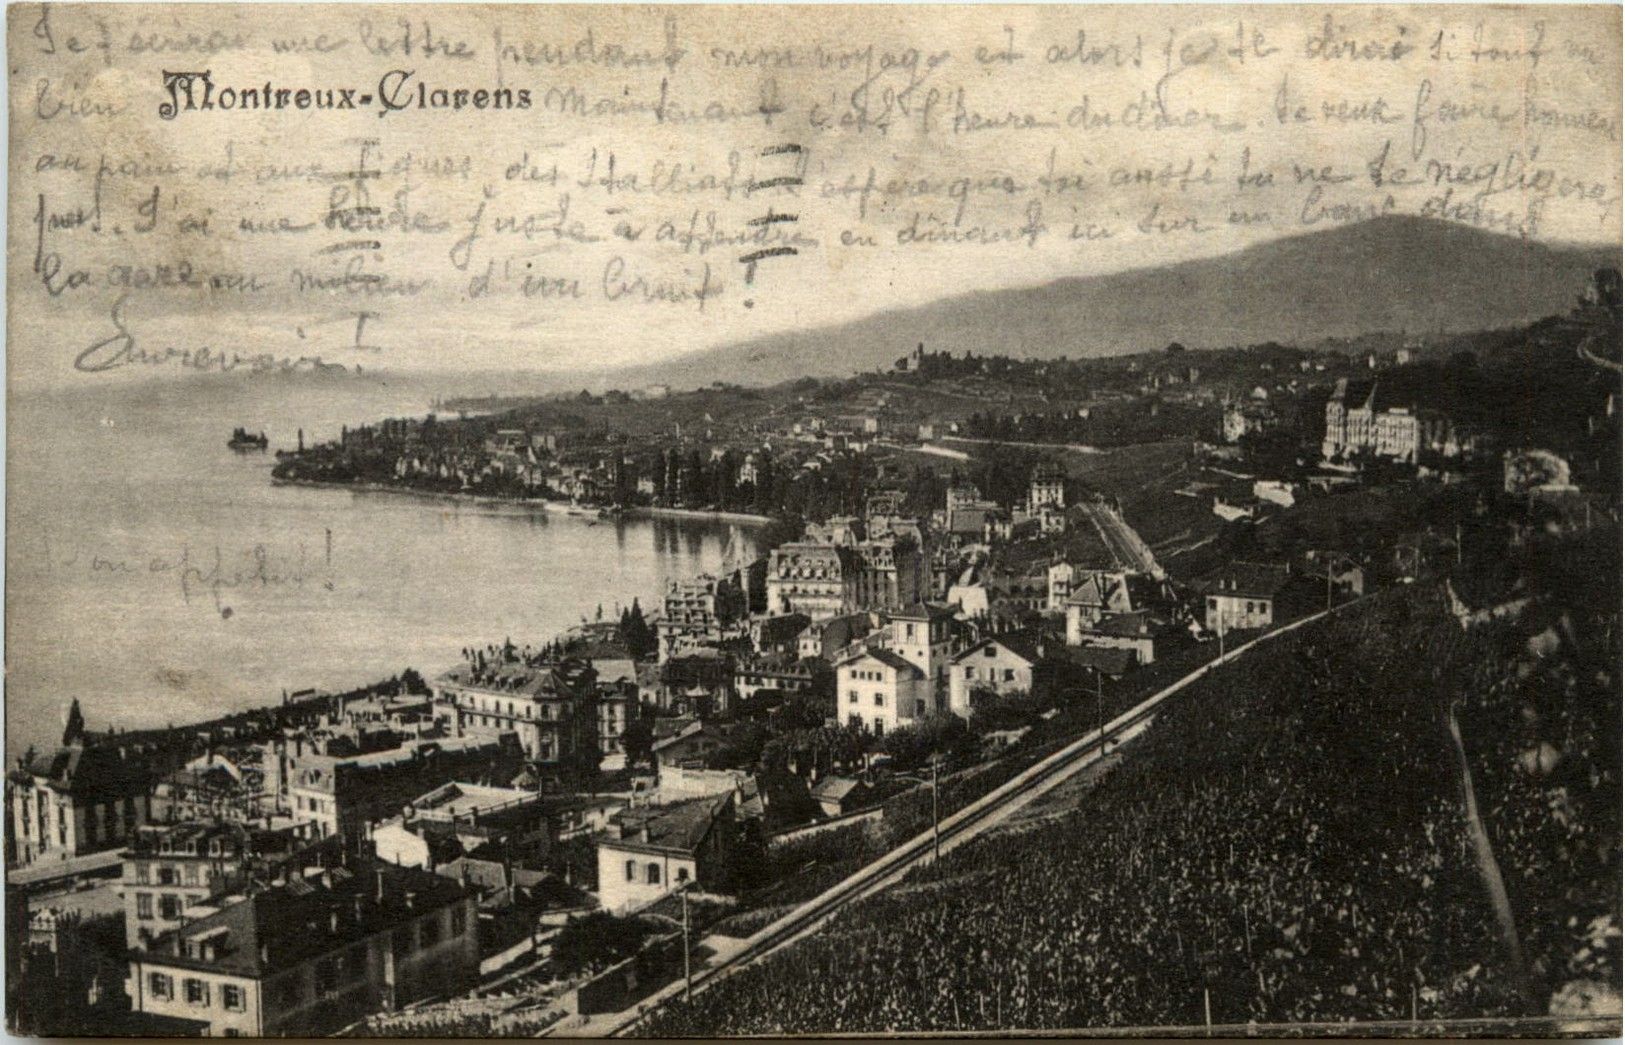 Je t'écrirai une lettre pendant mon voyage et alors je te dirai si tout va
bien Montreux-Clarens Maintenant c'est l'heure du dîner. Je veux faire honneur
au pain et aux figues des J'espère que toi aussi tu ne te négligeras
pas. J'ai une heure juste à attendre en dînant ici sur un banc dans
la gare au milieu d'un bruit!
Aurevoir!
Bon appétit!